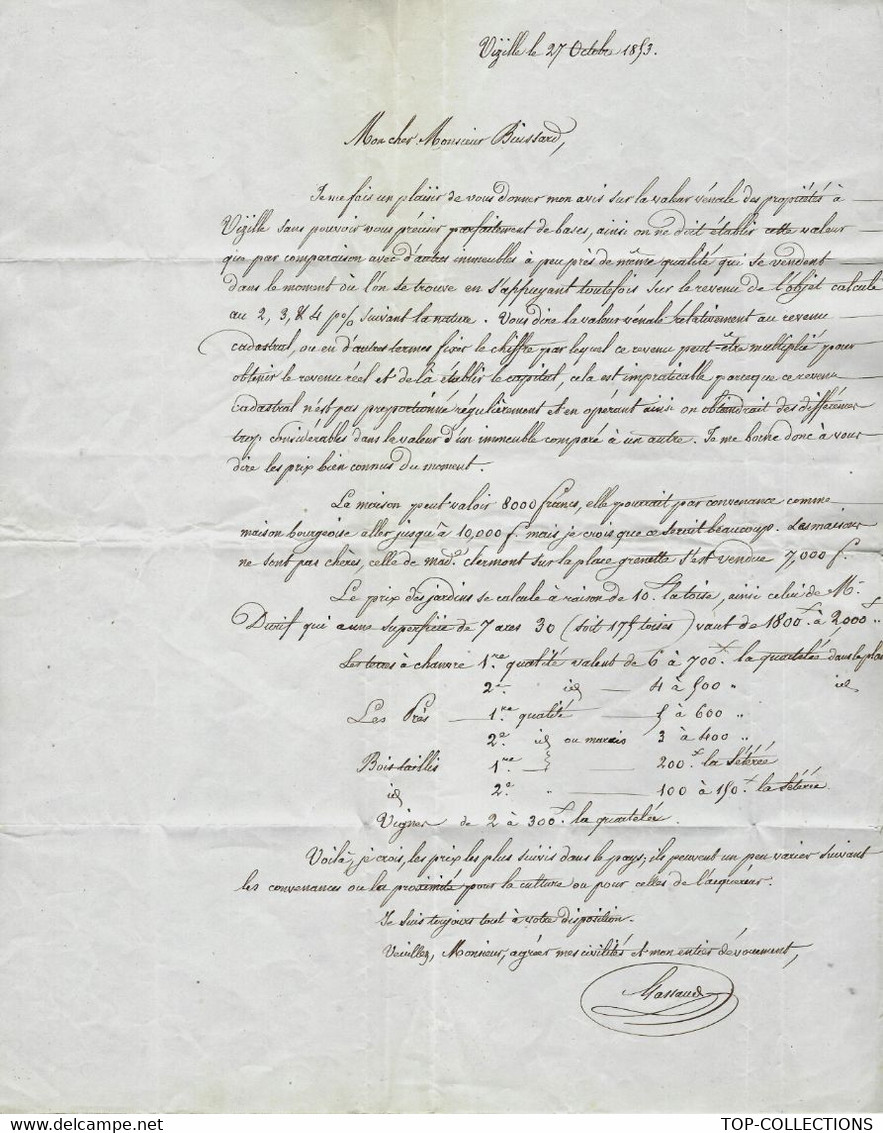 Vizille le 27 Octobre 1853.
Mon cher Monsieur Buissard,
Je me fais un plaisir de vous donner mon avis sur la valeur vénale des propriétés à
Vizille sans pouvoir vous préciser parfaitement de bases, ainsi on ne doit établir cette valeur
que par comparaison avec d'autres immeubles à peu près de même qualité qui se vendent
dans le moment où l'on se trouve en s'appuyant toutefois sur le revenu de l'objet calculé
au 2, 3, & 4 p% suivant la nature. Vous dire la valeur vénale relativement au revenu
cadastral, ou en d'autres termes fixer le chiffre par lequel ce revenu peut-être multiplié pour
obtenir le revenu réel et de là établir le capital, cela est impraticable parceque ce revenu
cadastral n'est pas proportionné régulièrement et en opérant ainsi on obtiendrait des différences
trop considérables dans la valeur d'un immeuble comparé à un autre. Je me borne donc à vous
dire les prix bien connus du moment.
La maison peut valoir 8000 francs, elle pourrait par convenance comme
maison bourgeoise aller jusqu'à 10,000 f. mais je crois que ce serait beaucoup. Les maisons
ne sont pas chères, celle de mad.e clermont sur la place grenette s'est vendue 7,000 f.
Le prix des jardins se calcule à raison de 10.f la toise, ainsi celui de M.
Durif qui a une superficie de 7 ares 30 (soit 175 toises) vaut de 1800f à 2000f ..
Les terres à chanvre 1.re qualité valent de 6 à 700.f la quartelée dans la plaine
2.e id — 4 à 500 " id
Les Prés — 1.re qualité — 5 à 600 "
2.e id ou marais 3 à 400 "
Bois taillis 1.re — 200.f la Sétérée
id 2.e " — 100 à 150.f la Sétérée
Vignes de 2 à 300.f la quartelée.
Voilà, je crois, les prix les plus suivis dans le pays; ils peuvent un peu varier suivant
les convenances ou la proximité pour la culture ou pour celles de l'acquéreur.
Je suis toujours tout à votre disposition.
Veuillez, Monsieur, agréer mes civilités et mon entier dévouement,
TOP-COLLECTIONS